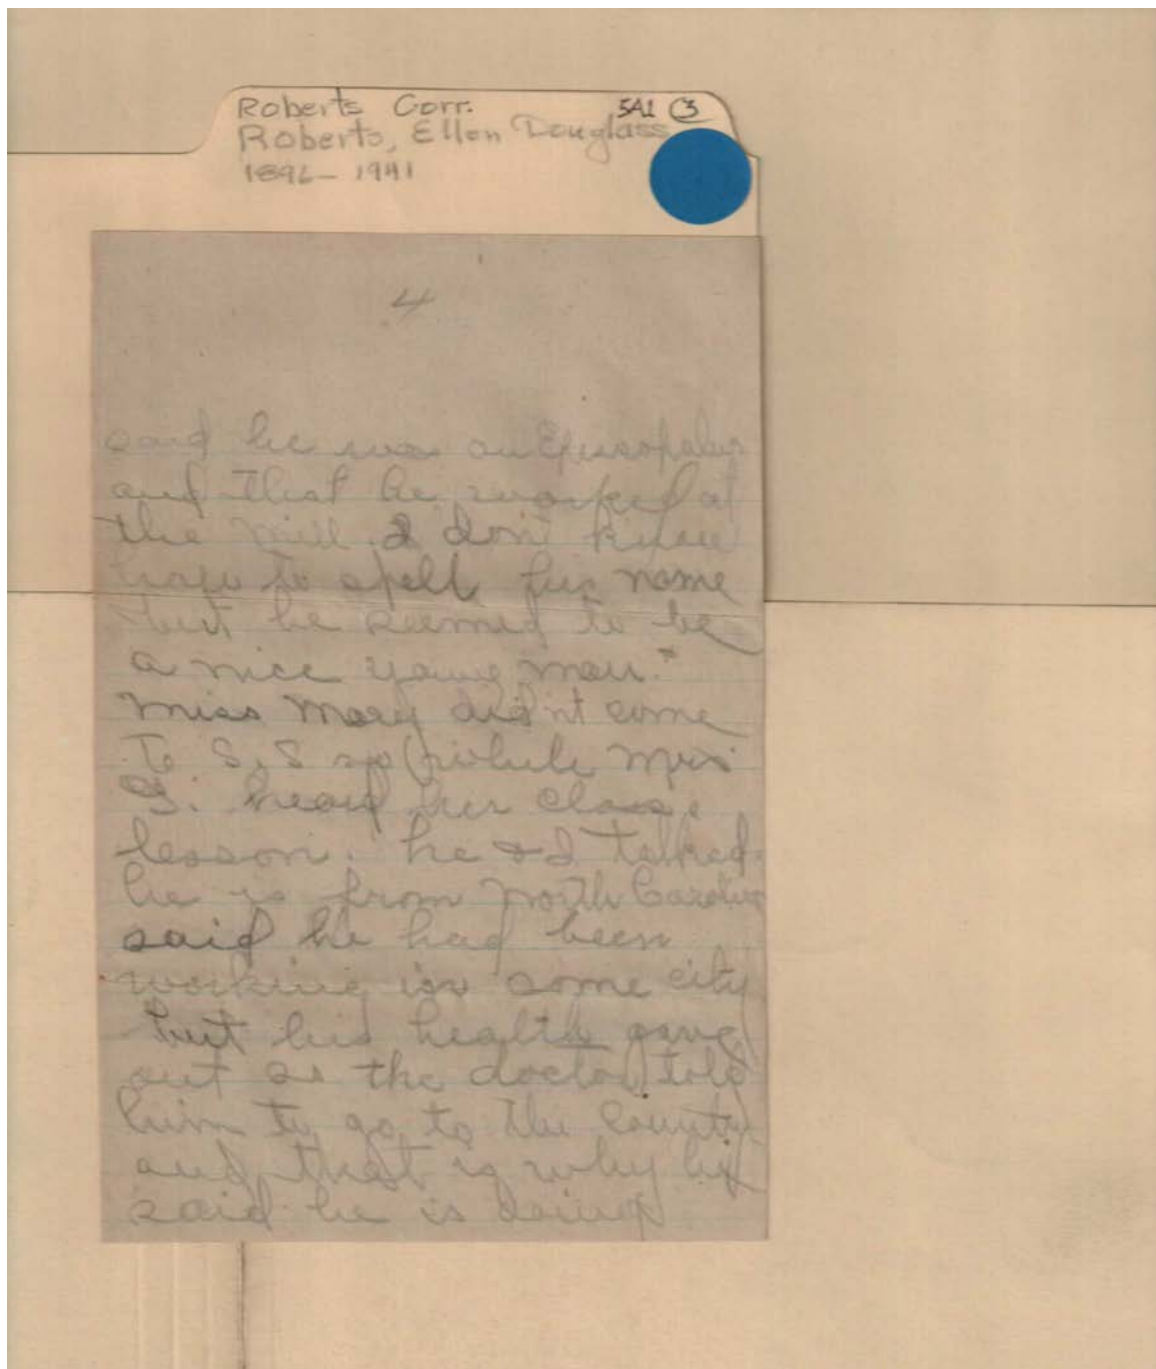 Roberts Corr. 5A1 (3)
Roberts, Ellen Douglass
1896 – 1941
4
said he was an Episcopalian
and that he worked at
the mill. I don't know
how to spell his name
but he seemed to be
a nice young man."
Miss Mary didn't come
to S.S so (while Miss
G. heard her class
lesson. he & I talked.
he is from North Carolina
said he had been
working in some city
but his health gave
out so the doctor told
him to go to the country
and that is why he
said he is doing